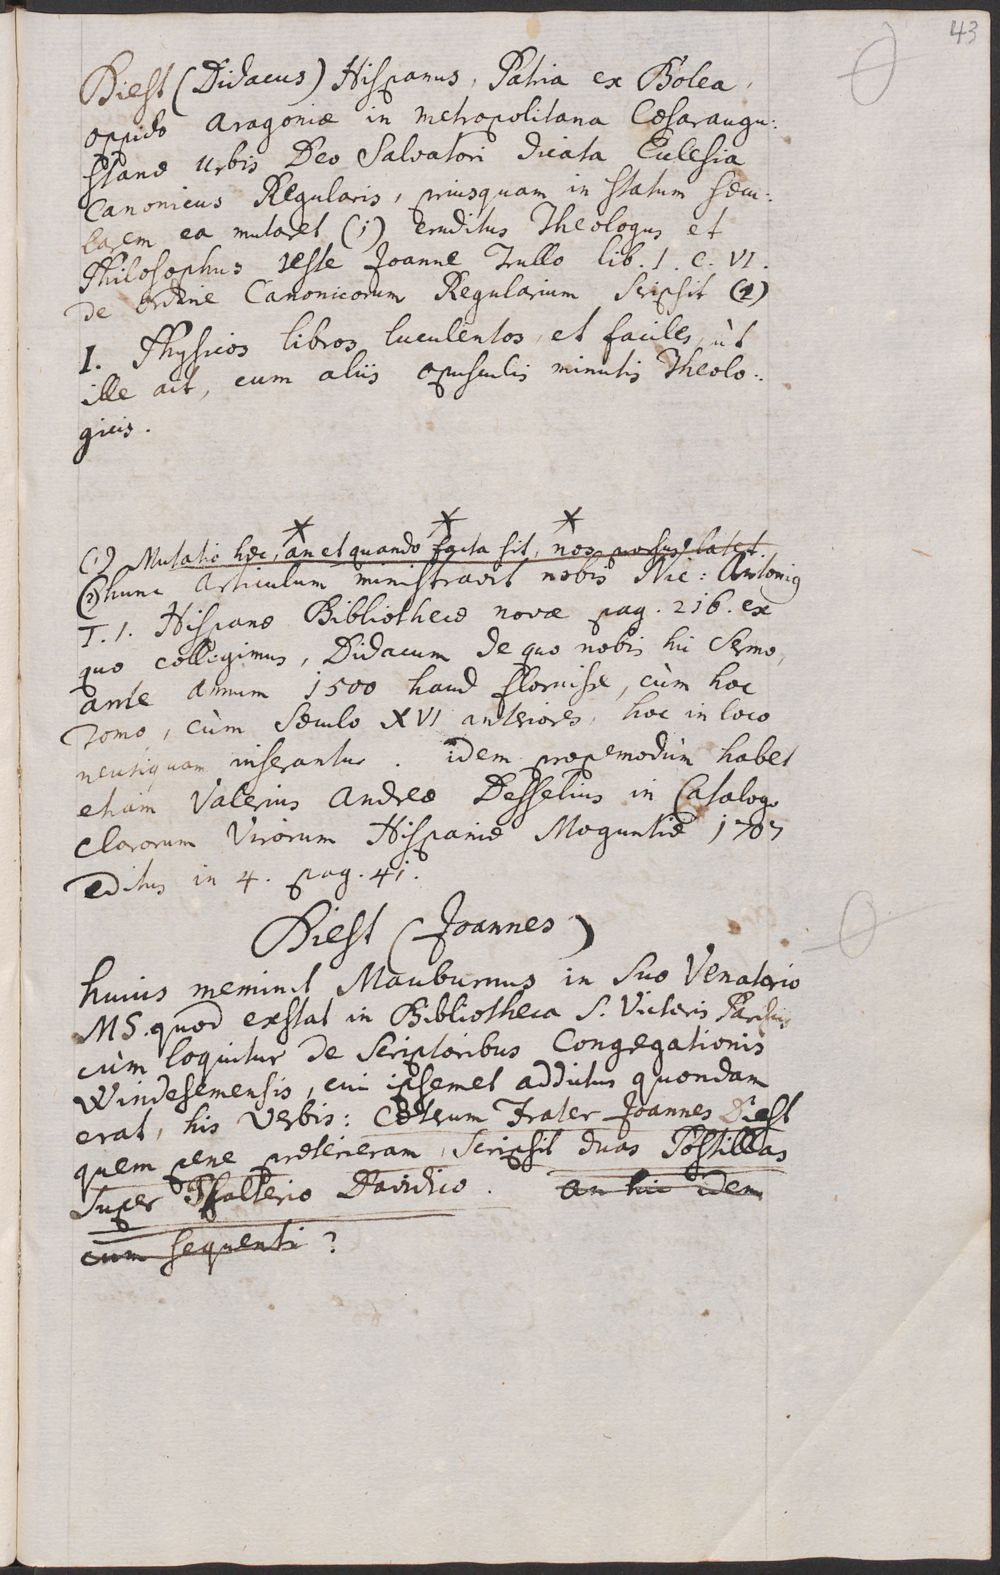 43
Diest (Didacus) Hispanus, Patria ex Bolea,
oppido Aragoniæ in metropolitana Cæsaraugu:
stanæ Urbis Deo Salvatori dicata Eclesia
Canonicus Regularis, priusquam in statum sæcu:
larem ea mutaret (1) eruditus Theologus et
Philosophus teste Joanne Trullo lib. 1. c. VI.
de ordine Canonicorum Regularium scripsit (2)
I. Physicos libros luculentos, et faciles, ùt
ille ait, cum aliis opusculis minutis Theolo:
gicis.
(1) Mutatio hæc, an et quando facta sit, nos prorsus latet.
(2) hunc articulum ministravit nobis Nic: Antonius
T. 1. Hispanæ Bibliothecæ novæ pag. 216. ex
quo collegimus, Didacum de quo nobis hic sermo,
ante annum 1500 haud floruisse, cùm hoc
Tomo, cùm sæculo XVI anteriores, hoc in loco
neutiquam inserantur. idem propemodùm habet
etiam Valerius Andreæ Desselius in Catalogo
clarorum Virorum Hispaniæ Moguntiæ 1707
editus in 4. pag. 41.
Diest (Joannes)
huius meminit Mauburnus in suo Venatorio
MS. quod exstat in Bibliotheca S. Victoris Parisiis
cùm loquitur de scriptoribus Congregationis
Windesemensis, cui ipsemet addictus quondam
erat, his verbis: Cæterum Frater Joannes Diest
quem pene præterieram, scripsit duas Postillas
super Psalterio Davidico. an hic idem
cum sequenti?